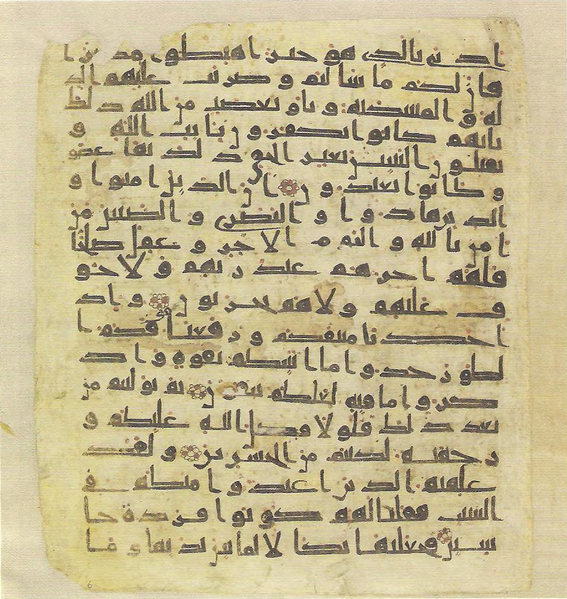 ادنى بالذى هو خير اهبطوا مصرا
فان لكم ما سالتم وضربت عليهم الذ
لة والمسكنة وباو بغضب من الله ذلك
بانهم كانوا يكفرون بايت الله و
يقتلون النبين بغير الحق ذلك بما عصو
وكانوا يعتدون ان الذين امنوا و
الذين هادوا والنصرى والصبين من
امن بالله واليوم الاخر وعمل صلحا
فلهم اجرهم عند ربهم ولا خو
ف عليهم ولا هم يحزنون واذ
اخذنا ميثقكم ورفعنا فوقكم ا
لطور خذوا ما اتينكم بقوة واذ
كروا ما فيه لعلكم تتقون ثم توليتم من
بعد ذلك فلولا فضل الله عليكم و
رحمته لكنتم من الخسرين ولقد
علمتم الذين اعتدوا منكم فى
السبت فقلنا لهم كونوا قردة خا
سين فجعلنها نكلا لما بين يديها وما